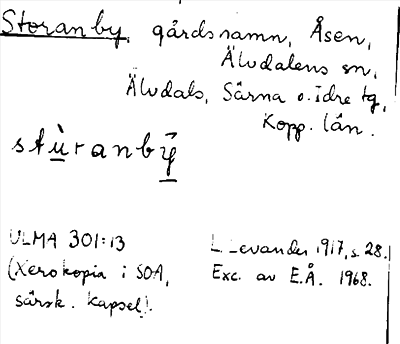 Storanby, gårdsnamn, Åsen,
Älvdalens sn,
Älvdals, Särna o. Idre tg,
Kopp. län.
stùranbȳ
ULMA 301:13
(Xerokopia i SOA,
särsk. kapsel).
L. Levander 1917, s. 28.
Exc. av E.Å. 1968.